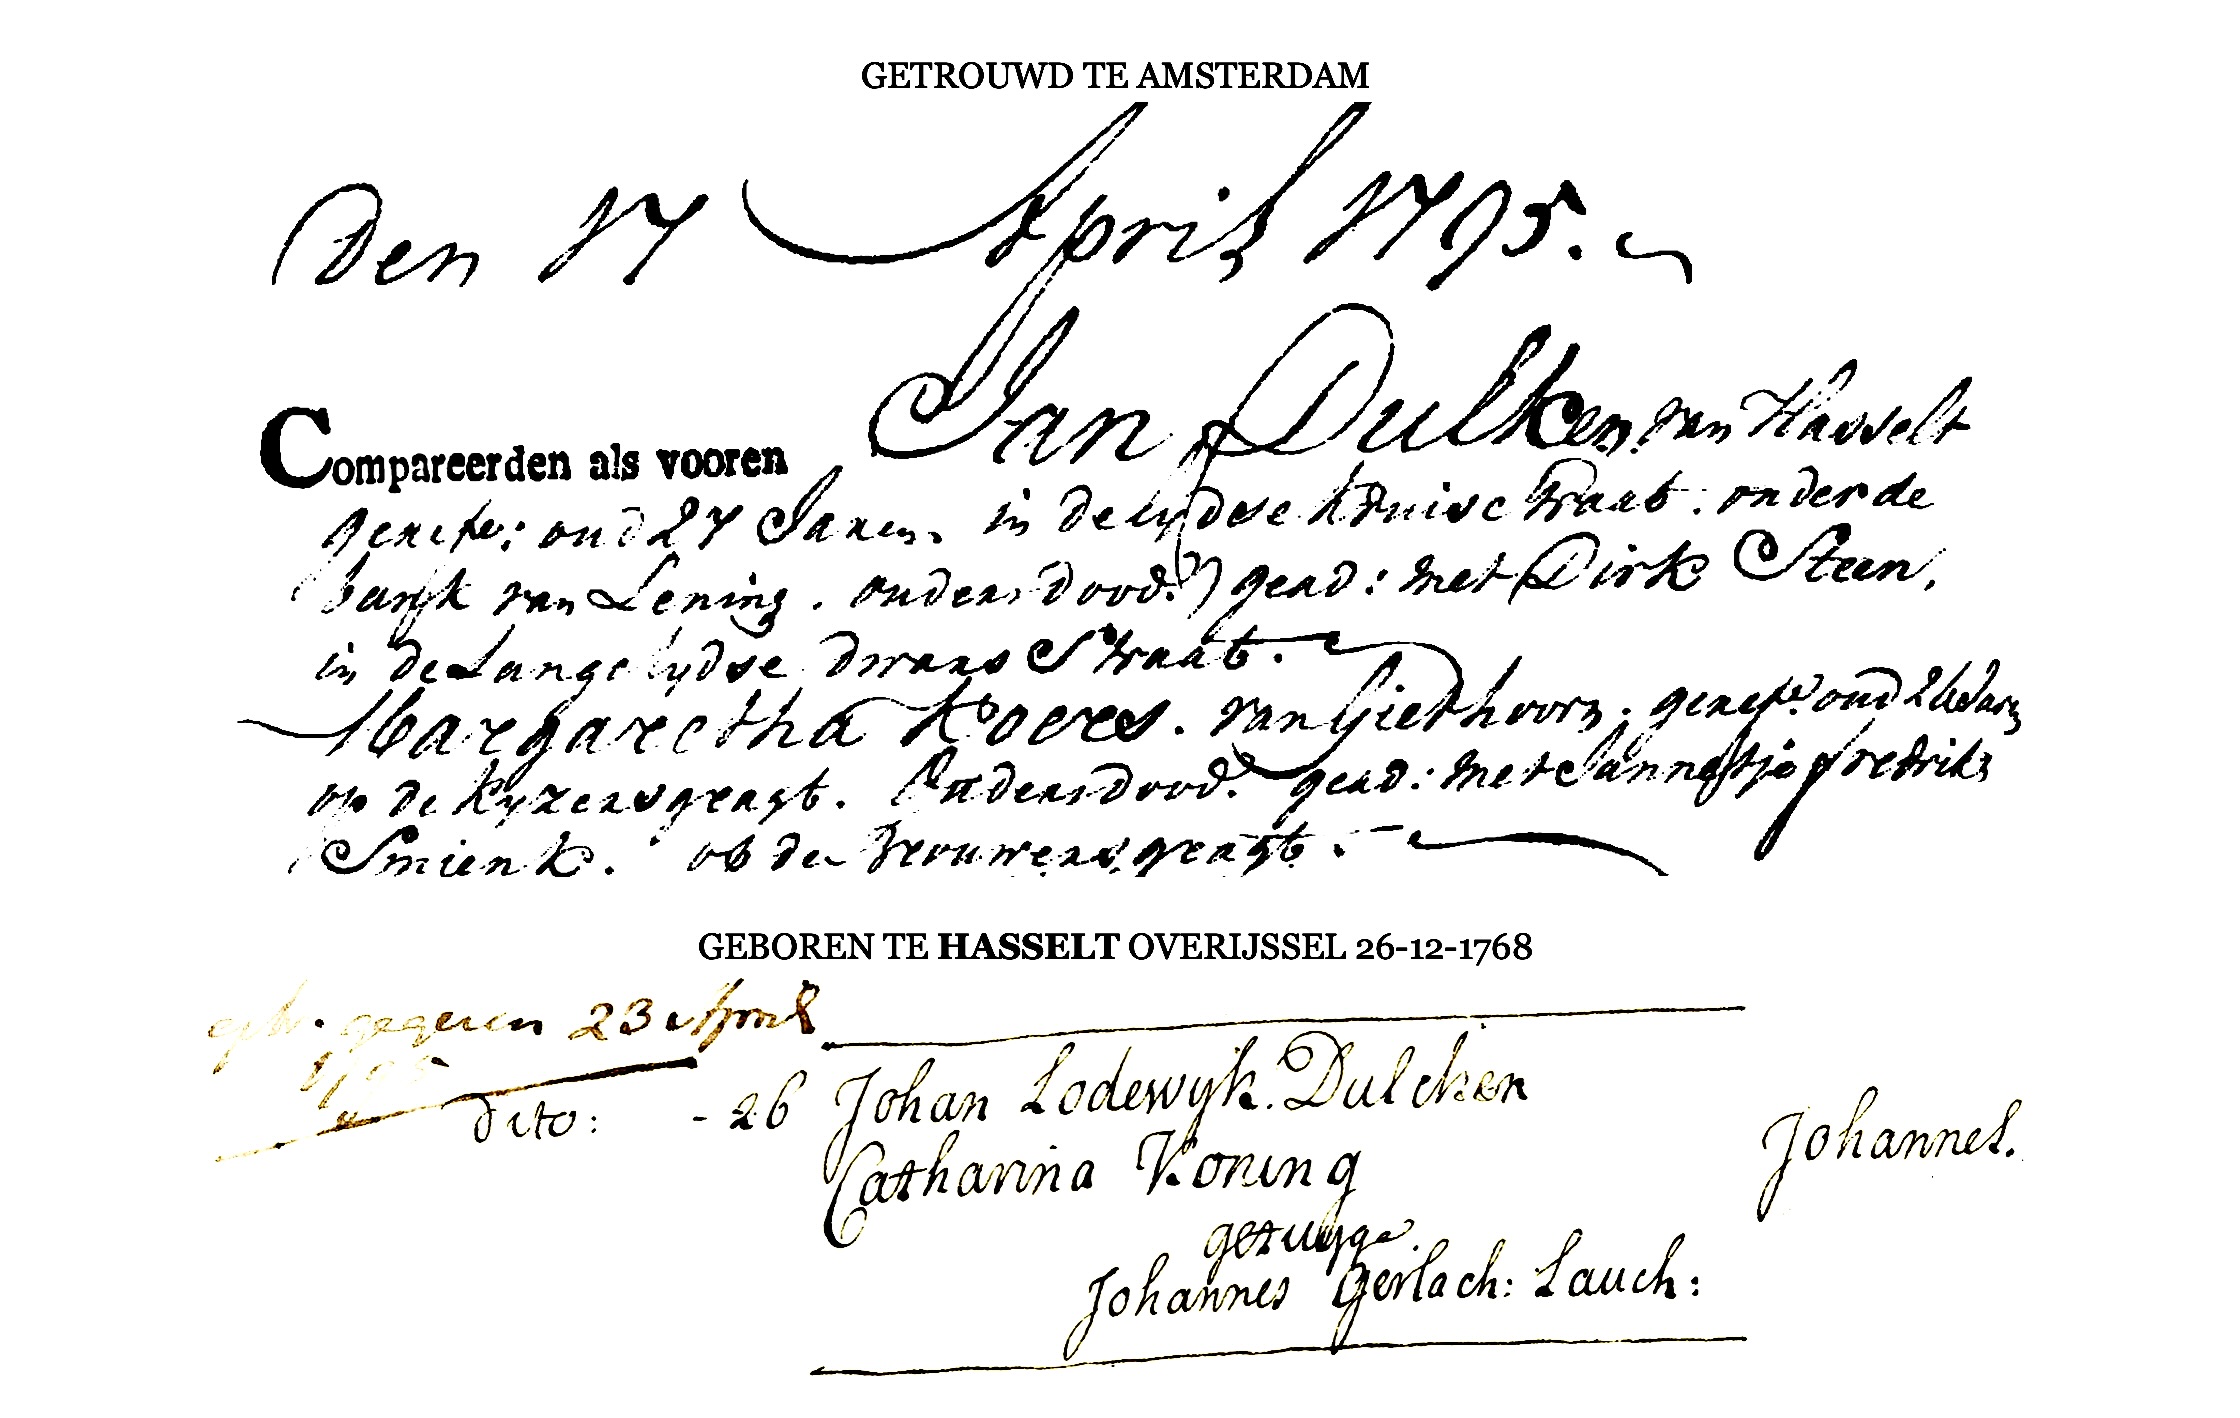 GETROUWD TE AMSTERDAM
Den 17 April 1795.
Compareerden als vooren Jan Dulken van Hasselt
geref: oud 27 Jaren in de lydse kruisstraat. onder de
bank van Lening. ouders dood. gead: met Dirk Steen,
in de Lange lydse dwars Straat.
Margaretha Koers. van Giethoorn. geref. oud 26 Jaren
op de Kyzersgragt. Ouders dood. gead: met Jannetje fredriks
Smienk. op de Brouwersgragt.
GEBOREN TE HASSELT OVERIJSSEL 26-12-1768
gegeven 23 April
1795
dito: - 26 Johan Lodewyk. Dulcken Johannes.
Catharina Koning
getuyge
Johannes Gerlach: Lauch: